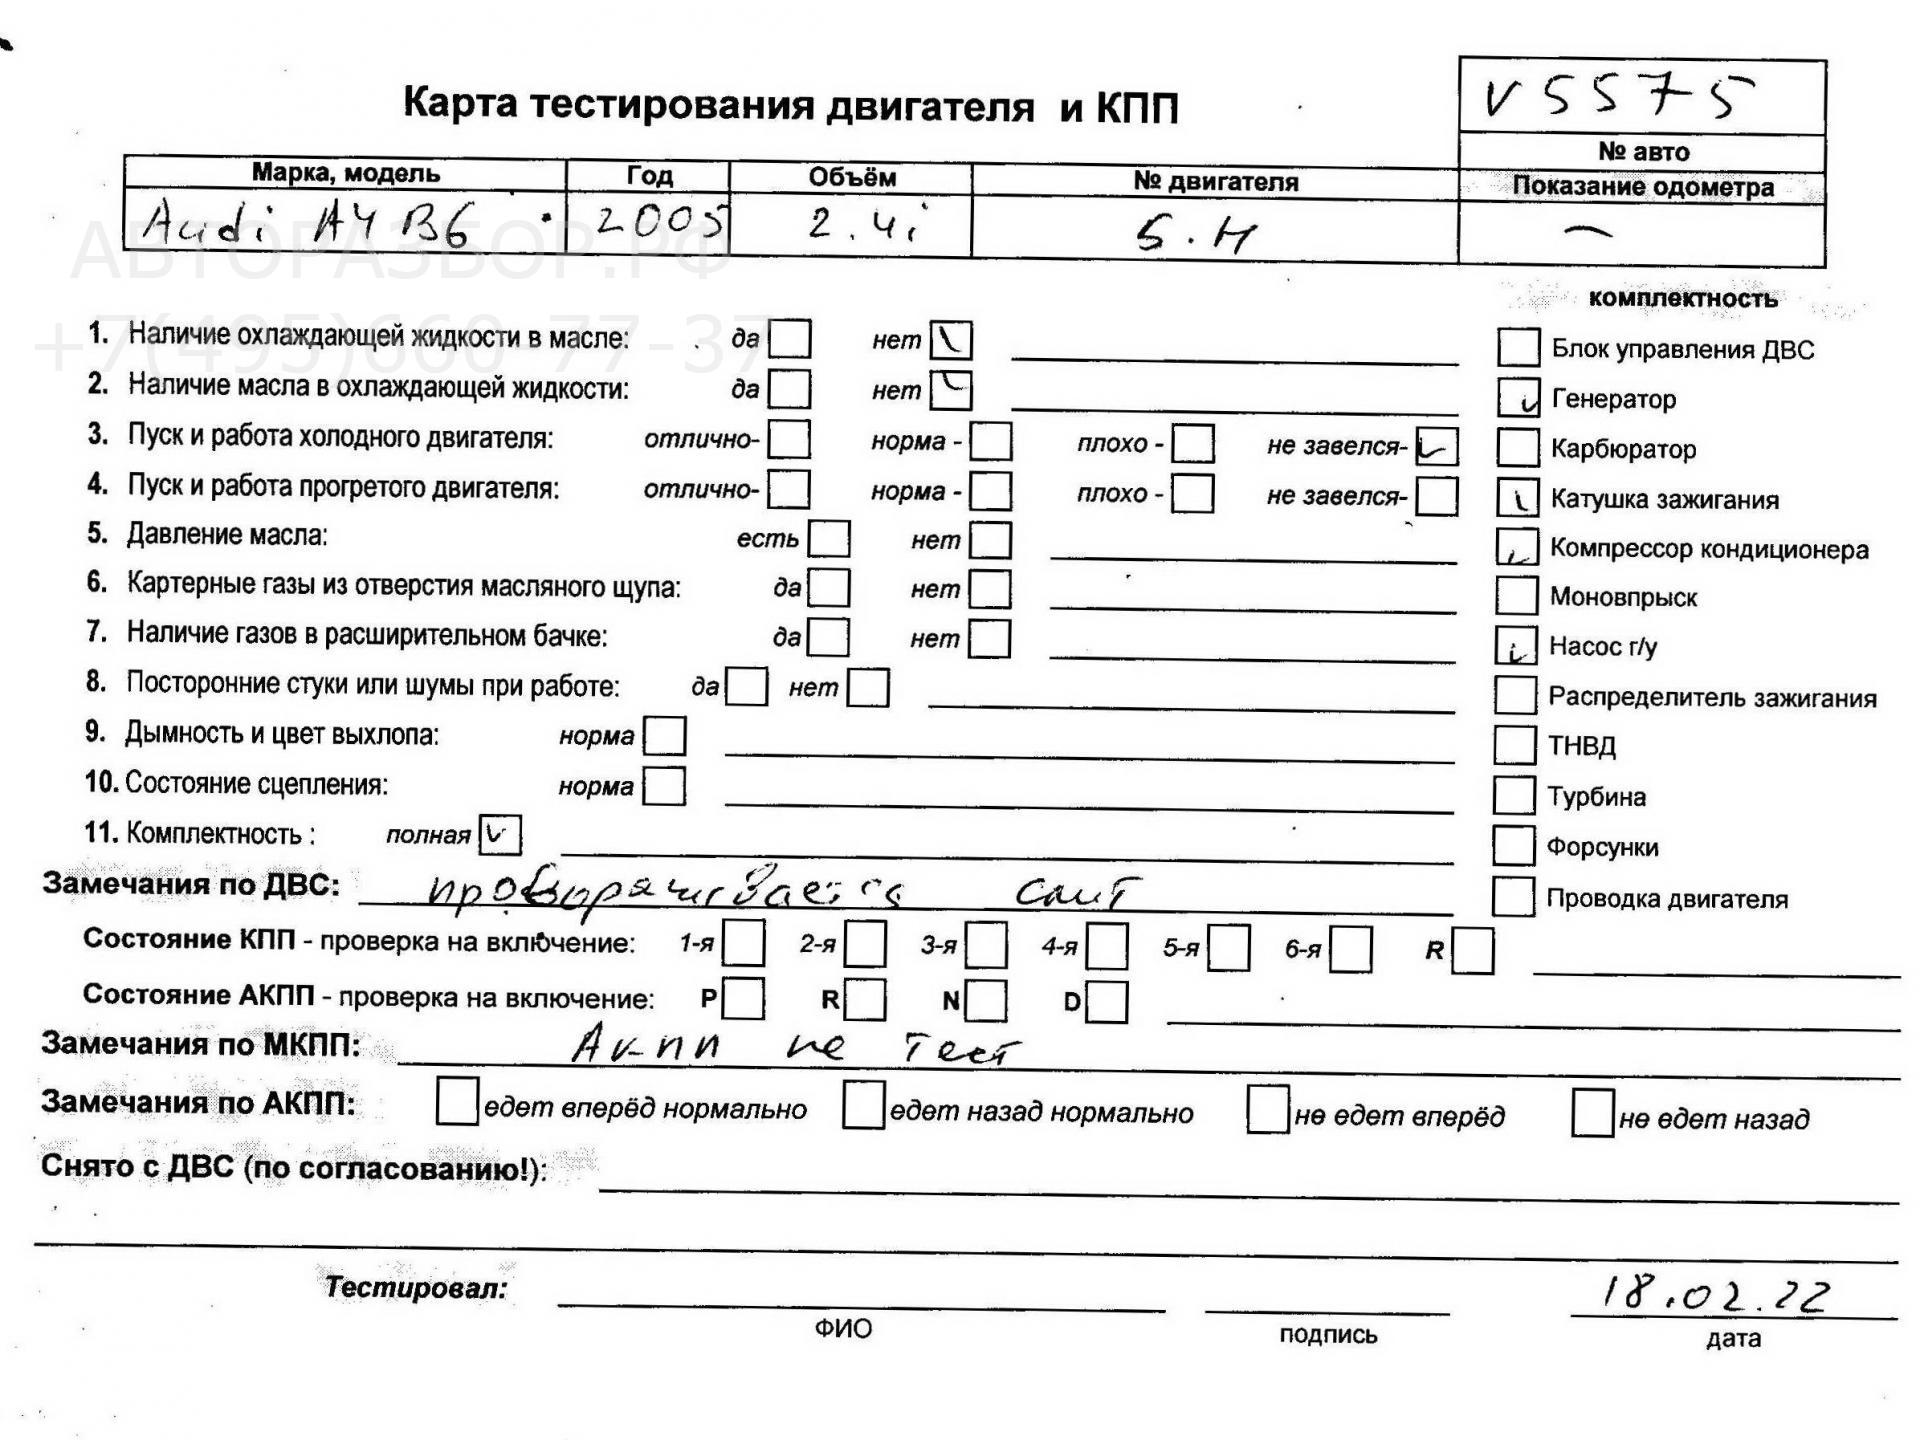 V5575
Карта тестирования двигателя и КПП
№ авто
Марка, модель Год Объём № двигателя Показание одометра
Audi A4 B6 2005 2.4i Б.Н —
АВТОРАЗБОР.РФ
+7(495)660-77-37
комплектность
1. Наличие охлаждающей жидкости в масле: да нет
Блок управления ДВС
2. Наличие масла в охлаждающей жидкости: да нет
Генератор
3. Пуск и работа холодного двигателя: отлично- норма - плохо - не завелся-
Карбюратор
4. Пуск и работа прогретого двигателя: отлично- норма - плохо - не завелся-
Катушка зажигания
5. Давление масла: есть нет
Компрессор кондиционера
6. Картерные газы из отверстия масляного щупа: да нет
Моновпрыск
7. Наличие газов в расширительном бачке: да нет
Насос г/у
8. Посторонние стуки или шумы при работе: да нет
Распределитель зажигания
9. Дымность и цвет выхлопа: норма
ТНВД
10. Состояние сцепления: норма
Турбина
11. Комплектность : полная
Форсунки
Замечания по ДВС:
Проводка двигателя
Состояние КПП - проверка на включение: 1-я 2-я 3-я 4-я 5-я 6-я R
Состояние АКПП - проверка на включение: P R N D
Замечания по МКПП: Акпп не тест
Замечания по АКПП: едет вперёд нормально едет назад нормально не едет вперёд не едет назад
Снято с ДВС (по согласованию!):
Тестировал: 18.02.22
ФИО подпись дата